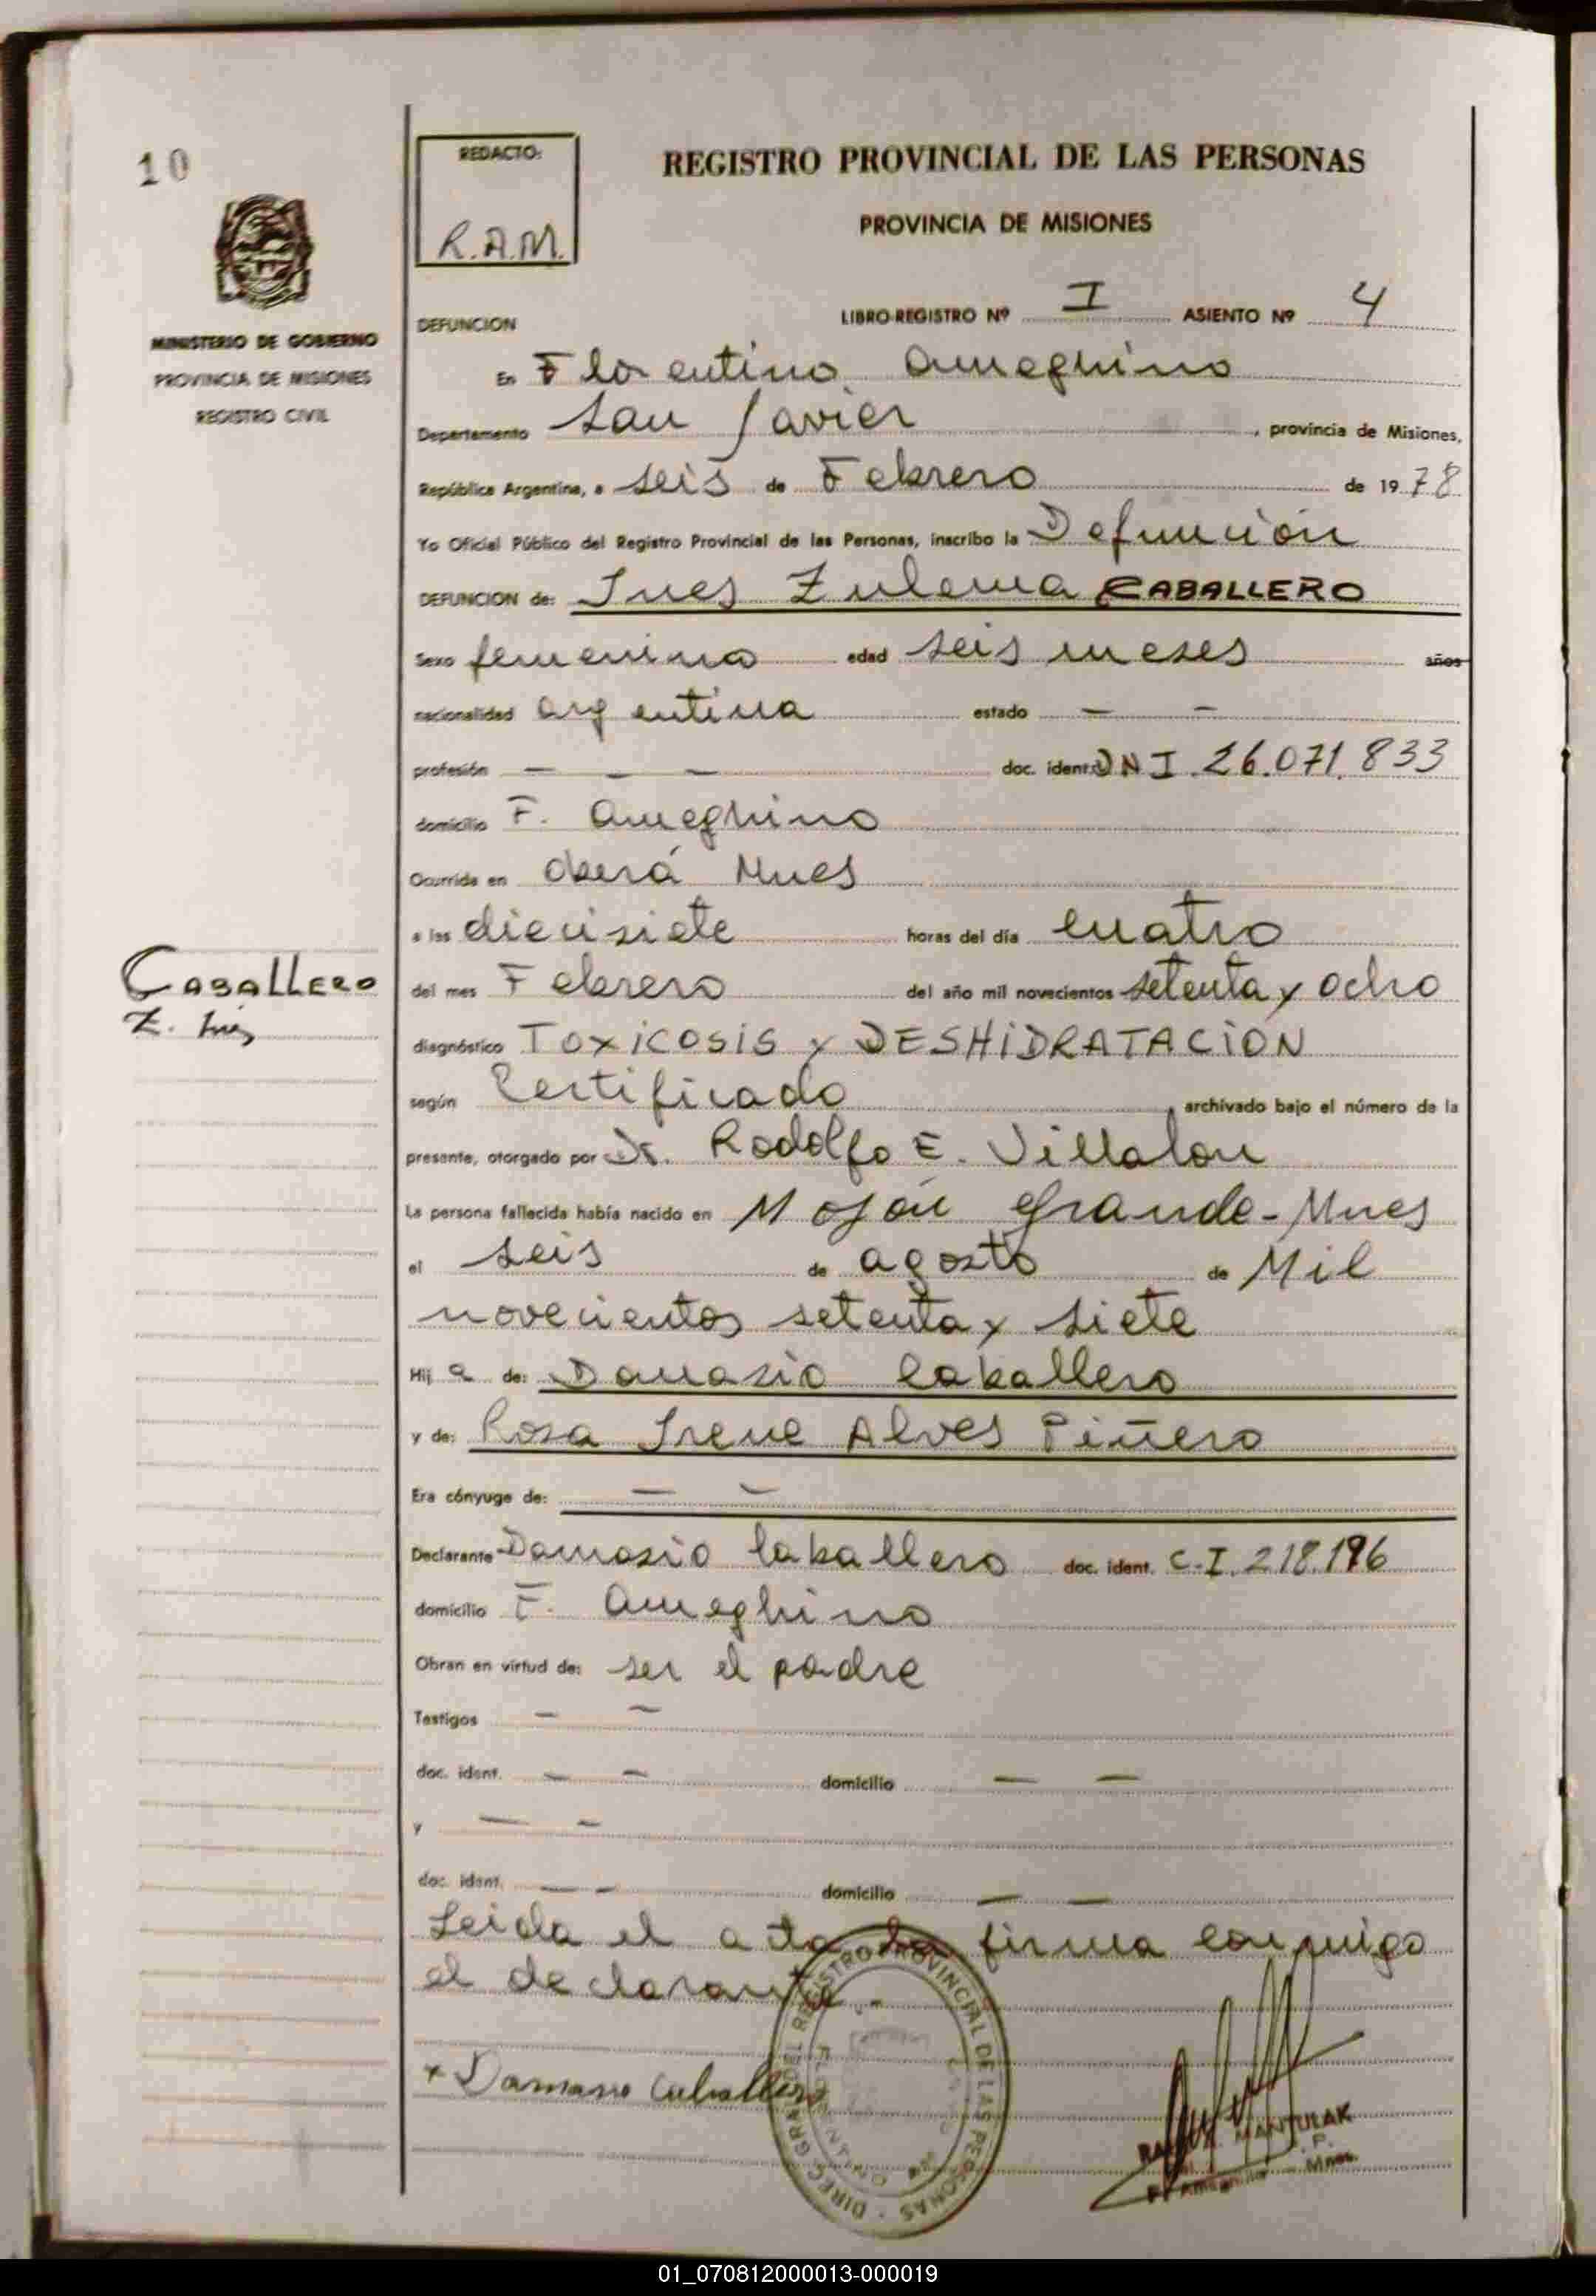 10
MINISTERIO DE GOBIERNO
PROVINCIA DE MISIONES
REGISTRO CIVIL
REDACTO:
R.A.M.
REGISTRO PROVINCIAL DE LAS PERSONAS
PROVINCIA DE MISIONES
DEFUNCION
LIBRO-REGISTRO Nº I ASIENTO Nº 4
En Florentino Ameghino
Departamento San Javier, provincia de Misiones,
República Argentina, a seis de Febrero de 1978
Yo Oficial Público del Registro Provincial de las Personas, inscribo la Defunción
DEFUNCION de: Ines Zulema CABALLERO
Sexo femenino edad seis meses años
nacionalidad argentina estado — —
profesión — — — doc. ident. DNI 26.071.833
domicilio F. Ameghino
Ocurrida en Oberá Mnes
a las diecisiete horas del día cuatro
del mes Febrero del año mil novecientos setenta y ocho
diagnóstico TOXICOSIS y DESHIDRATACION
según Certificado, archivado bajo el número de la
presente, otorgado por Dr. Rodolfo E. Villalon
La persona fallecida había nacido en Mojón Grande - Mnes
el seis de agosto de Mil
novecientos setenta y siete
Hija de: Damasio Caballero
y de: Rosa Irene Alves Piñero
Era cónyuge de: — —
Declarante Damasio Caballero doc. ident. C.I. 218.196
domicilio F. Ameghino
Obran en virtud de: ser el padre
Testigos — —
doc. ident. — — domicilio — —
y — —
doc. ident. — — domicilio — —
Leida el acta la firma conmigo
el declarante
+ Damasio Caballero
CABALLERO
Z. Inés
DIREC. GRAL. DEL REGISTRO PROVINCIAL DE LAS PERSONAS
MANTULAK
Mnes.
01_070812000013-000019